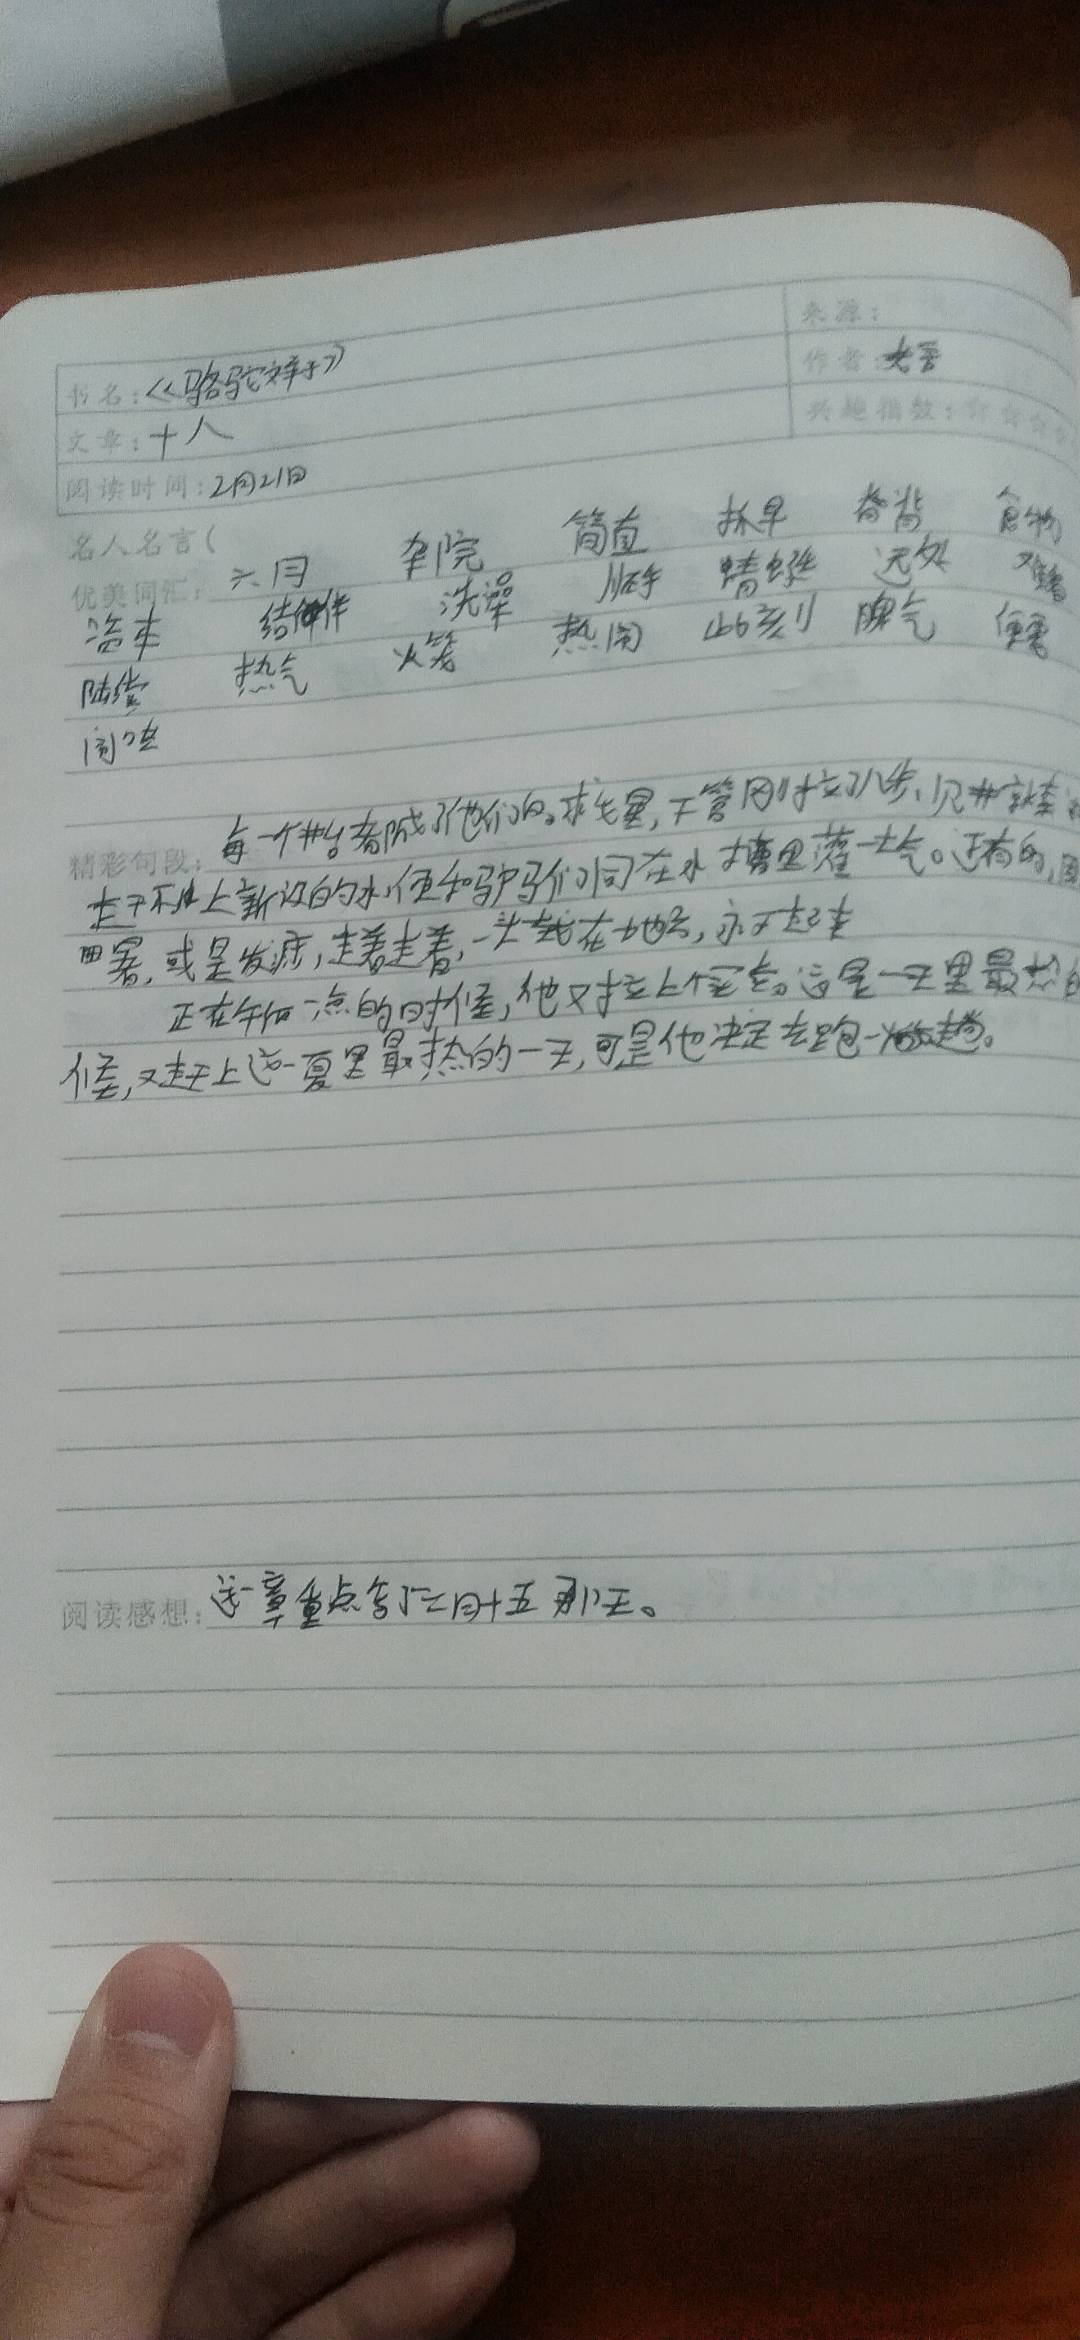 来源：
书名：《骆驼祥子》 作者：老舍
文章：十八 兴趣指数：☆☆☆☆
阅读时间：2月21日
名人名言（
优美词汇： 六月 杂院 简直 抓早 脊背 食物
结伴 洗澡 顺手 蜻蜓 远处
陆续 热气 火笼 热闹 此刻 脾气 便宜
精彩句段： 每一个井台都成了他们的救星，不管刚拉了几步，见井就奔过
赶不上新设的水 便和驴马们同在水槽里灌一大气。还有的，因
中暑，或是发痧，走着走着，一头栽在地上，永不起来
正在午后一点的时候，他又拉上个买卖。这是一天里最热的
候，又赶上这一夏里最热的一天，可是他决定去跑一趟。
阅读感想： 这一章重点写了六月十五那天。